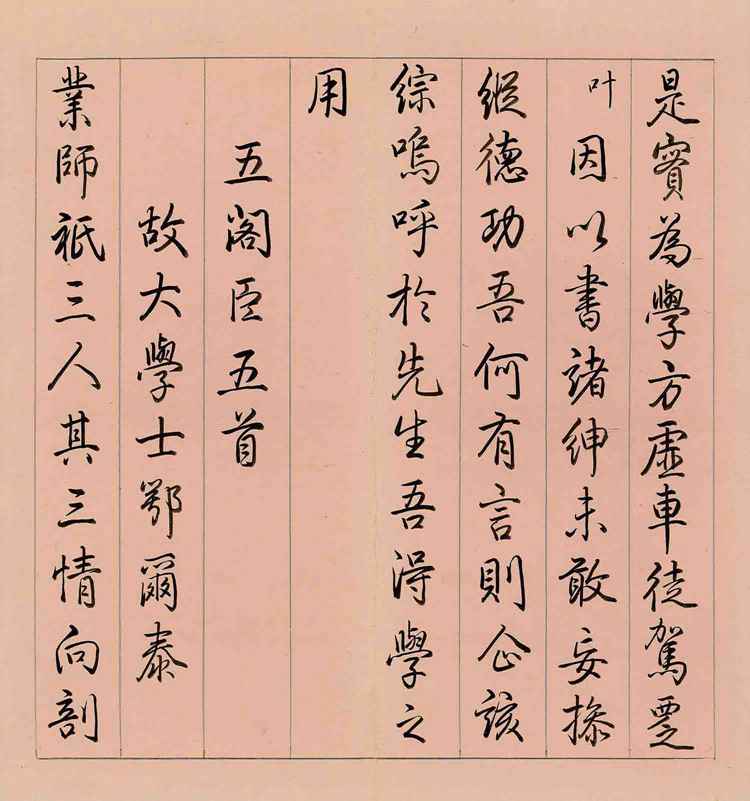 是實為學方虛車徒駕覂
叶因以書諸紳未敢妄操
縱德功吾何有言則企該
綜嗚呼於先生吾得學之
用
五閣臣五首
故大學士鄂爾泰
業師祗三人其三情向剖